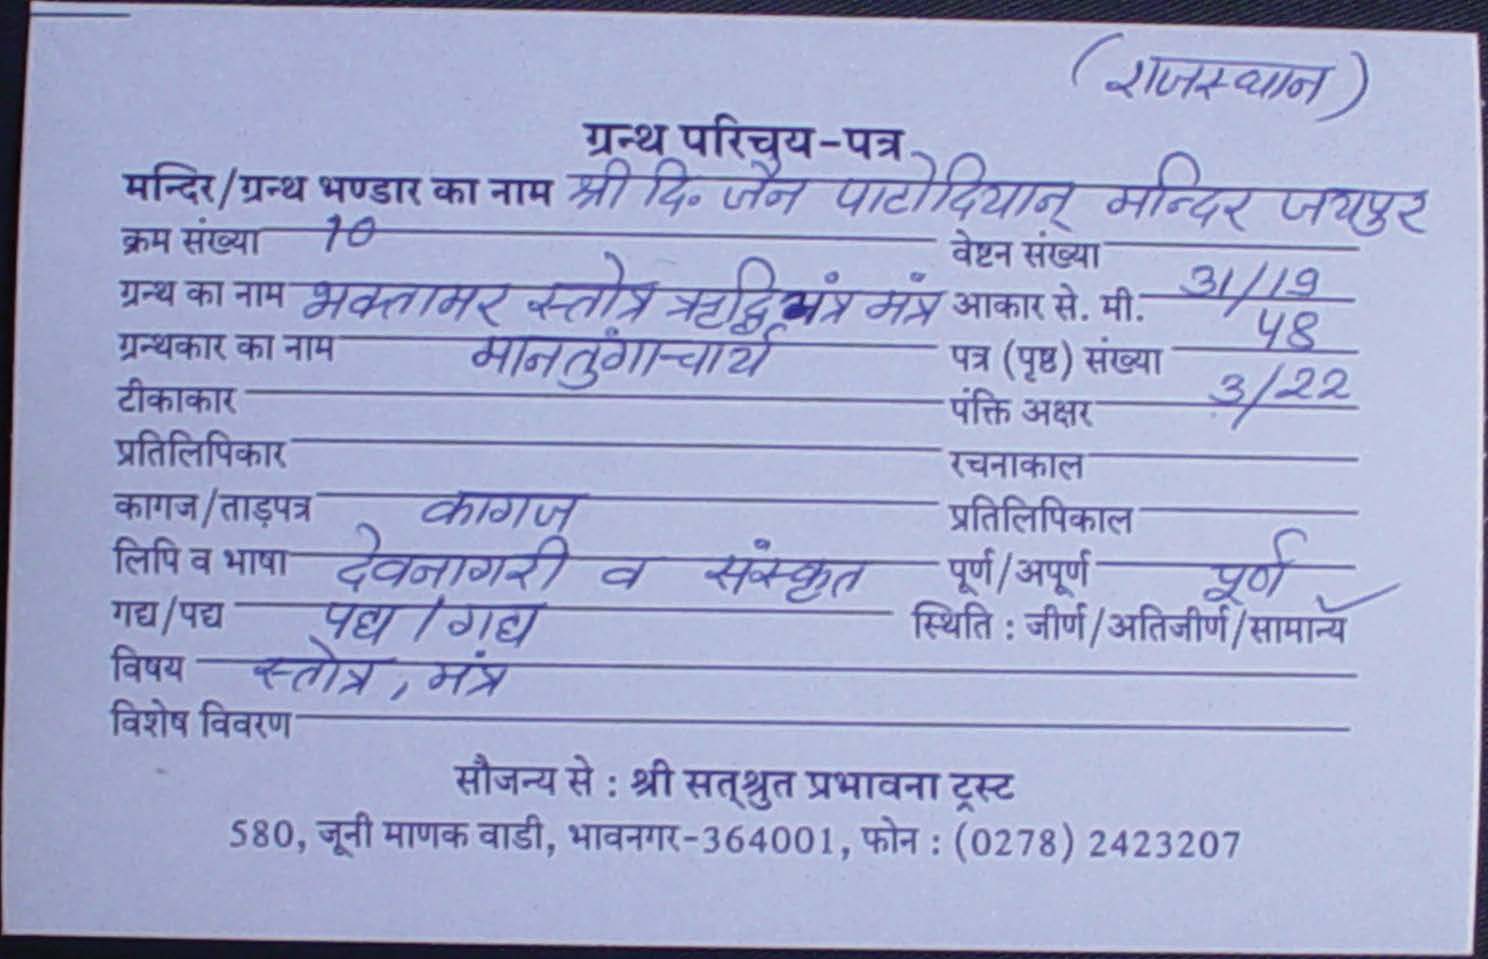 (राजस्थान)
ग्रन्थ परिचय-पत्र
मन्दिर/ग्रन्थ भण्डार का नाम श्री दि. जैन पाटोदियान् मन्दिर जयपुर
क्रम संख्या 10 वेष्टन संख्या
ग्रन्थ का नाम भक्तामर स्तोत्र ऋद्धि यंत्र मंत्र आकार से. मी. 31/19
ग्रन्थकार का नाम मानतुंगाचार्य पत्र (पृष्ठ) संख्या 48
टीकाकार पंक्ति अक्षर 3/22
प्रतिलिपिकार रचनाकाल
कागज/ताड़पत्र कागज प्रतिलिपिकाल
लिपि व भाषा देवनागरी व संस्कृत पूर्ण/अपूर्ण पूर्ण
गद्य/पद्य पद्य / गद्य स्थिति : जीर्ण/अतिजीर्ण/सामान्य ✓
विषय स्तोत्र, मंत्र
विशेष विवरण
सौजन्य से : श्री सत्श्रुत प्रभावना ट्रस्ट
580, जूनी माणक वाडी, भावनगर-364001, फोन : (0278) 2423207